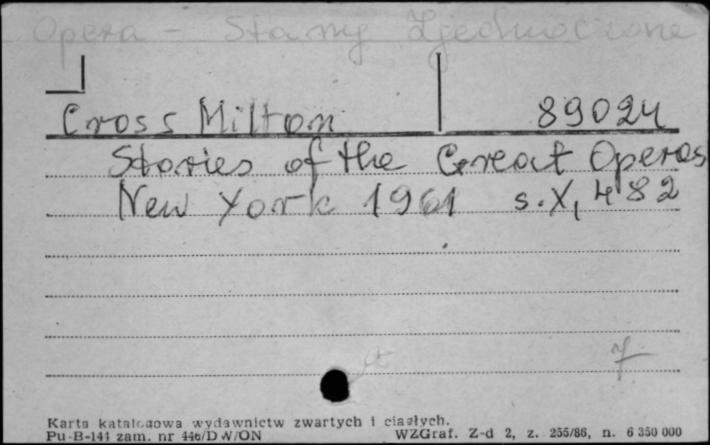 Opera - Stany Zjednoczone
Cross Milton 89024
Stories of the Great Operas
New York 1961 s. X, 482
7
Karta katalogowa wydawnictw zwartych i ciągłych.
Pu-B-141 zam. nr 446/D W/ON WZGraf. Z-d 2, z. 255/86, n. 6 350 000